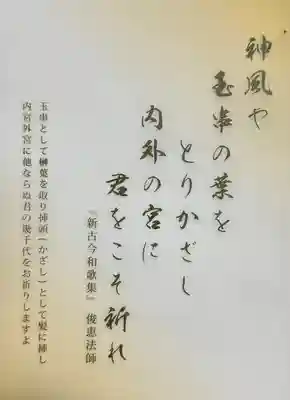 神風や
玉串の葉を
とりかざし
内外の宮に
君をこそ祈れ
『新古今和歌集』 俊恵法師
玉串として榊葉を取り挿頭(かざし)として髪に挿し
内宮外宮に他ならぬ君の幾千代をお祈りしますよ